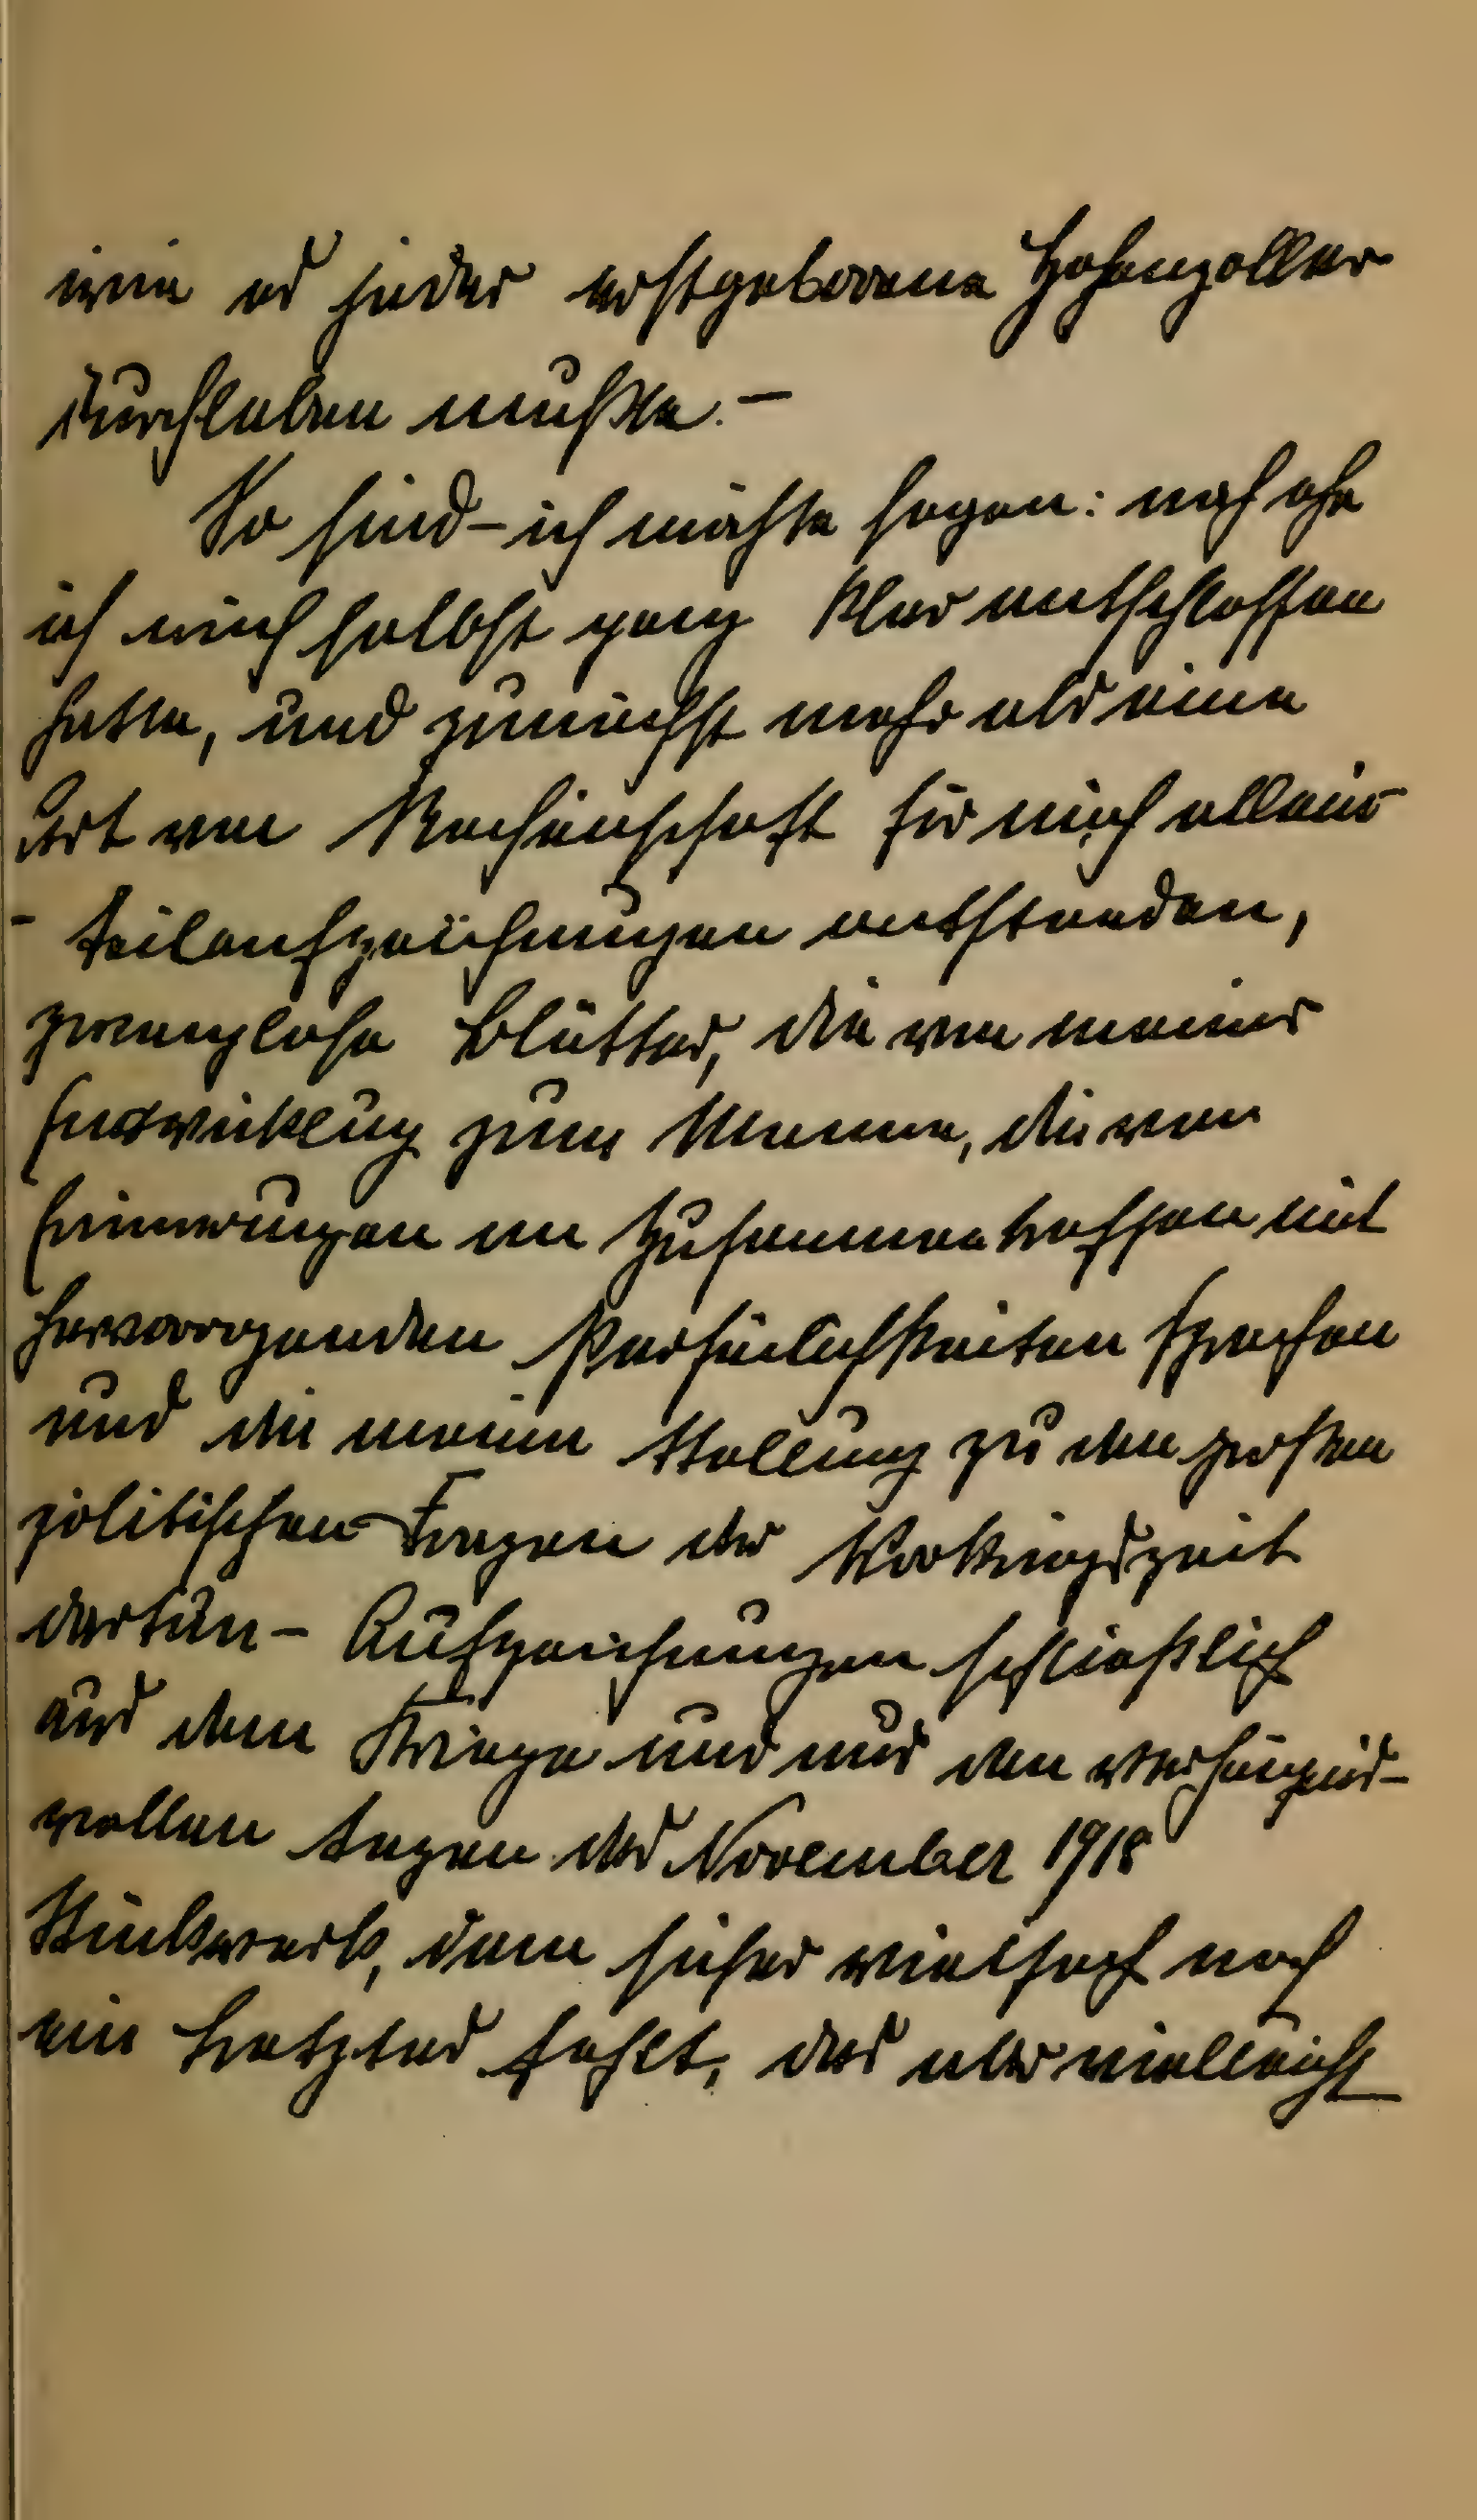 wie es jeder erstgeborene Hohenzoller
durchleben mußte. –
So sind – ich möchte sagen: noch ehe
ich mich selbst ganz klar entschlossen
hatte, und zunächst mehr als eine
Art von Rechenschaft für mich allein
– Teilaufzeichnungen entstanden,
zwanglose Blätter, die von meiner
Entwicklung zum Manne, die von
Erinnerungen an Zusammentreffen mit
hervorragenden Persönlichkeiten sprechen
und die meine Stellung zu den großen
politischen Fragen der Vorkriegszeit
dartun – Aufzeichnungen schließlich
aus dem Kriege und aus den verhängnis-
vollen Tagen des November 1918
Stückwerk, dem sicher vielfach noch
ein Letztes fehlt, das aber vielleicht